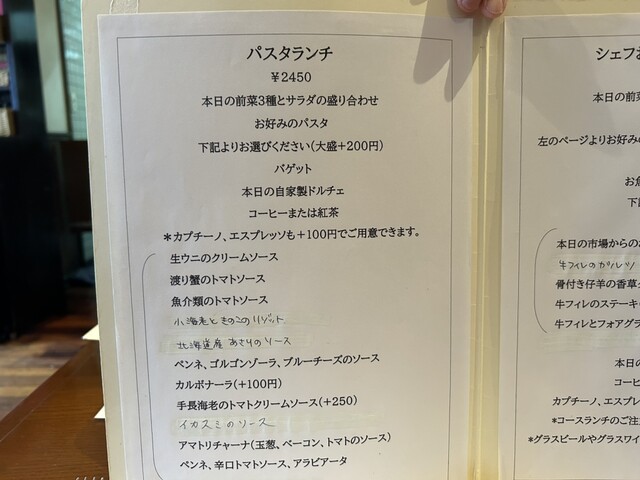 パスタランチ
￥2450
本日の前菜3種とサラダの盛り合わせ
お好みのパスタ
下記よりお選びください(大盛+200円)
バゲット
本日の自家製ドルチェ
コーヒーまたは紅茶
＊カプチーノ、エスプレッソも+100円でご用意できます。
生ウニのクリームソース
渡り蟹のトマトソース
魚介類のトマトソース
小海老ときのこのリゾット
北海道産あさりのソース
ペンネ、ゴルゴンゾーラ、ブルーチーズのソース
カルボナーラ(+100円)
手長海老のトマトクリームソース(+250)
イカスミのソース
アマトリチャーナ(玉葱、ベーコン、トマトのソース)
ペンネ、辛口トマトソース、アラビアータ
シェフお
本日の前菜
左のページよりお好みの
お魚
下記
本日の市場からのお
牛フィレのカツレツ
骨付き仔羊の香草
牛フィレのステーキ
牛フィレとフォアグラ
本日の
コーヒ
カプチーノ、エスプレ
*コースランチのご注
*グラスビールやグラスワイ